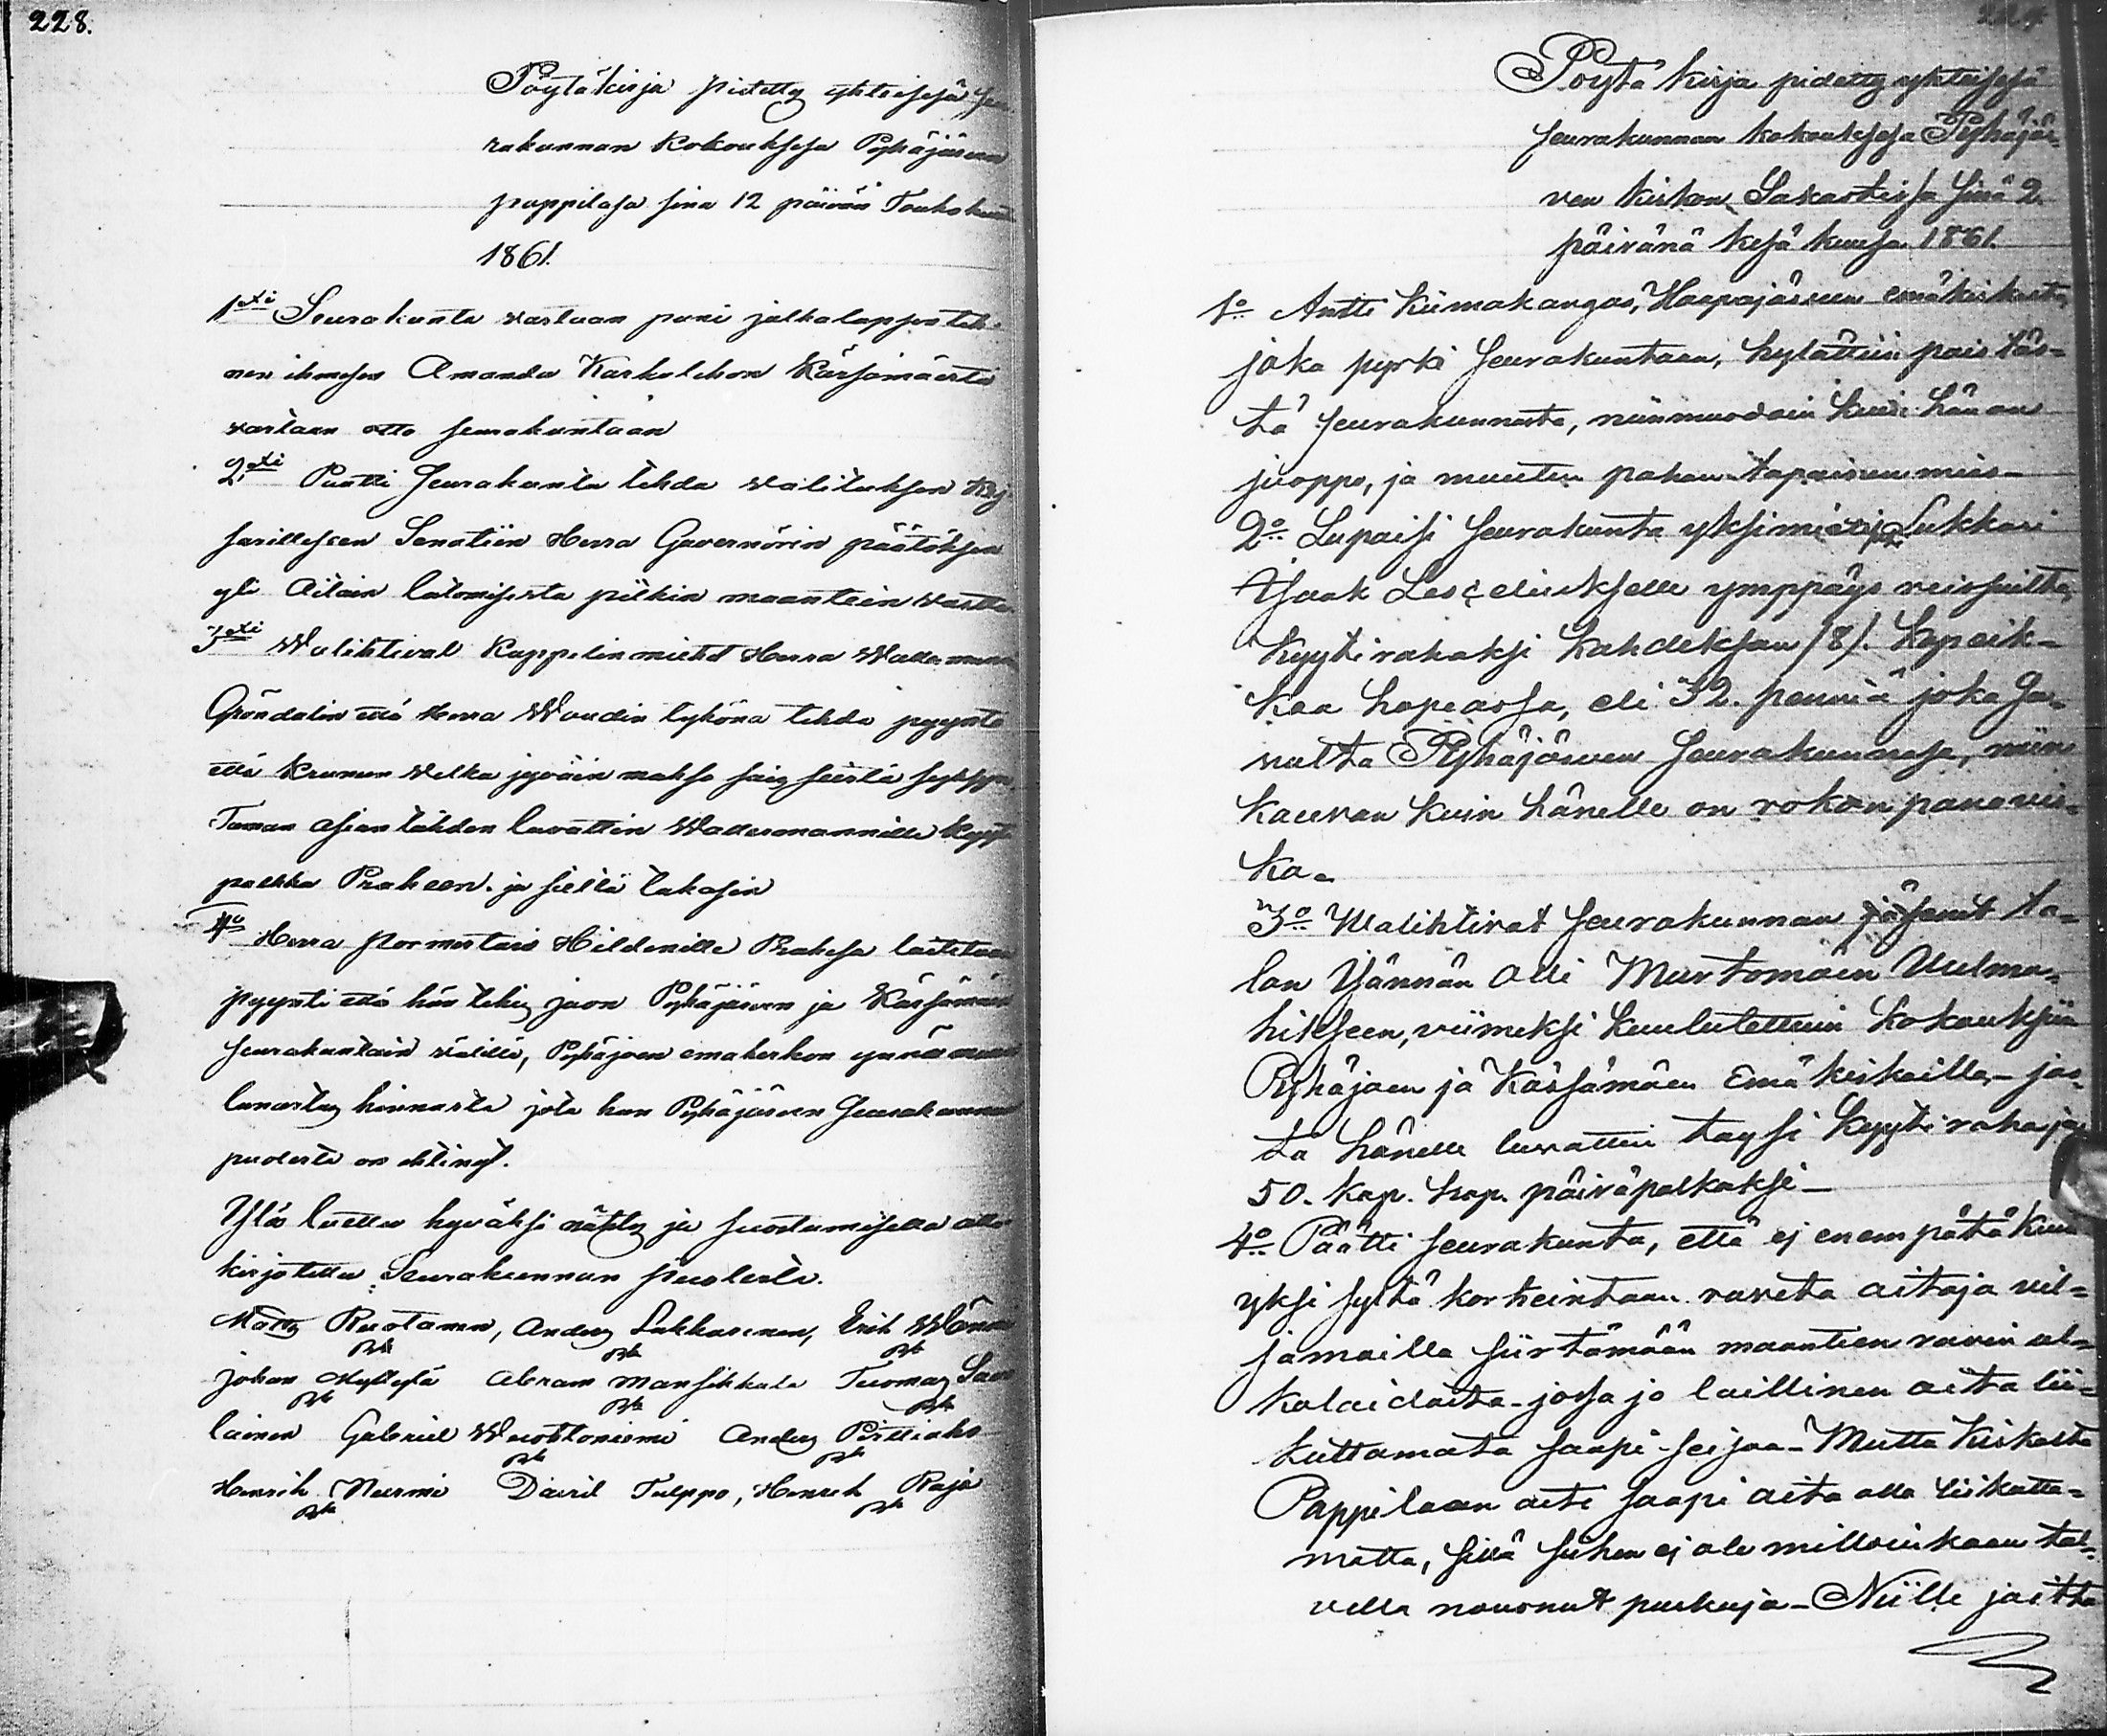 228.
Pöytäkirja pidetty yhteisesä Seu
rakunnan Kokouksesa Pyhäjärven
pappilasa sinä 12 päivän Toukokuu
1861.
1xi Seurakunta vastaan pani jalkalapsen teh-
nen ihmisen Amanda Karhulehon Kärsämäestä
vastaan otto seurakuntaan
2xi Päätti Seurakunta tehdä valituksen Kej
sarilliseen Senatiin Herra Guvernörin päätöksen
yli Aitain latomisesta pitkin maantein vartta
3xi Walihtivat Kappelin miehet Herra Walle mann
Gröndalin että Herra Woudin tykönä tehdä pyyntö
että Krunun velka jyväin makso sais seistä syksyn
Tämän asian tähden luvattin Wallesmannille kyyt
palkka Praheen ja sieltä takasin
4o Herra Pormestari Hildenille Brahesa laitetaan
pyynti että hän tekis jaon Pyhäjärven ja Kärsämäen
seurakuntain välillä, Pyhäjoen emäkirkon ynnä muun
lunastus hinnasta jota hän Pyhäjärven Seurakunnan
puolesta on ehtinyt.
Ylös luettu hyväksi nähty ja suostumisella alle
kirjotettu Seurakunnan puolesta.
Matts Ruotanen, Anders Lukkarinen, Erik Wänn
Johan Myllylä Abram Mansikkala Tuomas Savo
lainen Gabriel Wuohtoniemi Anders Pirttiaho
Henrik Nurmi David Tulppo, Henrik Raja
Pöytä kirja pidetty yhteisesä
seurakunnan kokouksesa Pyhäjär-
ven kirkon Sakastissa sinä 2.
päivänä kesä kuusa 1861.
1o Antti Kiimakangas, Haapajärven emäkirkosta,
joka pyrki seurakuntaan, hylättiin pois täs-
tä seurakunnasta, niinmuodoin kuin hän on
juoppo, ja muuten pahan-tapainen mies-
2o Lupaisi seurakunta yksimielisesti Lukkari
Isaak Lesceliukselle ymppäys reissuilta,
kyytirahaksi kahdeksan (8). kopeik-
kaa hopeassa, eli 32. penniä joka ja-
vulta Pyhäjärven seurakunnasa, niin
kauvan kuin hänelle on rokon panovir-
ka.
3o Walihtivat seurakunnan jäsenet ta-
lan Isännän Olli Murtomäen Uulma-
hikseen, viimeksi kuulutettuin kokouksiin
Pyhäjoen ja Kärsämäen Emäkirkoilla - jos-
ta hänelle luvattiin täysi kyytiraha ja
50. kop. hop. päiväpalkaksi -
4o Päätti seurakunta, että ej enempätä kuin
yksi syltä kortteintaan ruveta aitoja vil-
jamailla siirtämään maantien ravin ul-
kolaidasta - jossa jo laillinen aita lii-
kuttamata saapi seisoa - Mutta Kirkolta
Pappilaan asti saapi aita olla liikutta-
matta, sillä siihen ej ole milloinkaan tal-
vella nousnut puskuja - Niille joitta